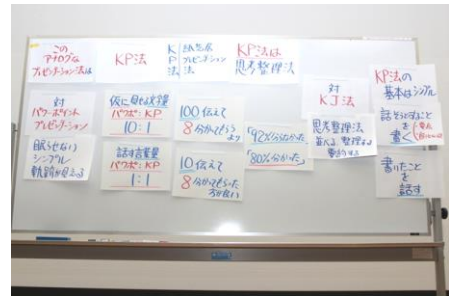 この
アナログな
プレゼンテーション法は
KP法
K 紙芝居
P プレゼンテーション
法 法
KP法は
思考整理法
対
パワーポイント
プレゼンテーション
眠らない
シンプル
仮に見せる文字量
パワポ:KP
10:1
話す言葉量
パワポ:KP
1:1
100伝えて
8分かってもらう
より
10伝えて
8分かってもらった
方が良い
「92%分からなかった」
「80%分かった」
対
KJ法
思考整理法
並べる、整理する
KP法の
基本はシンプル
話そうとすること
を
書く
書いたこと
を
話す